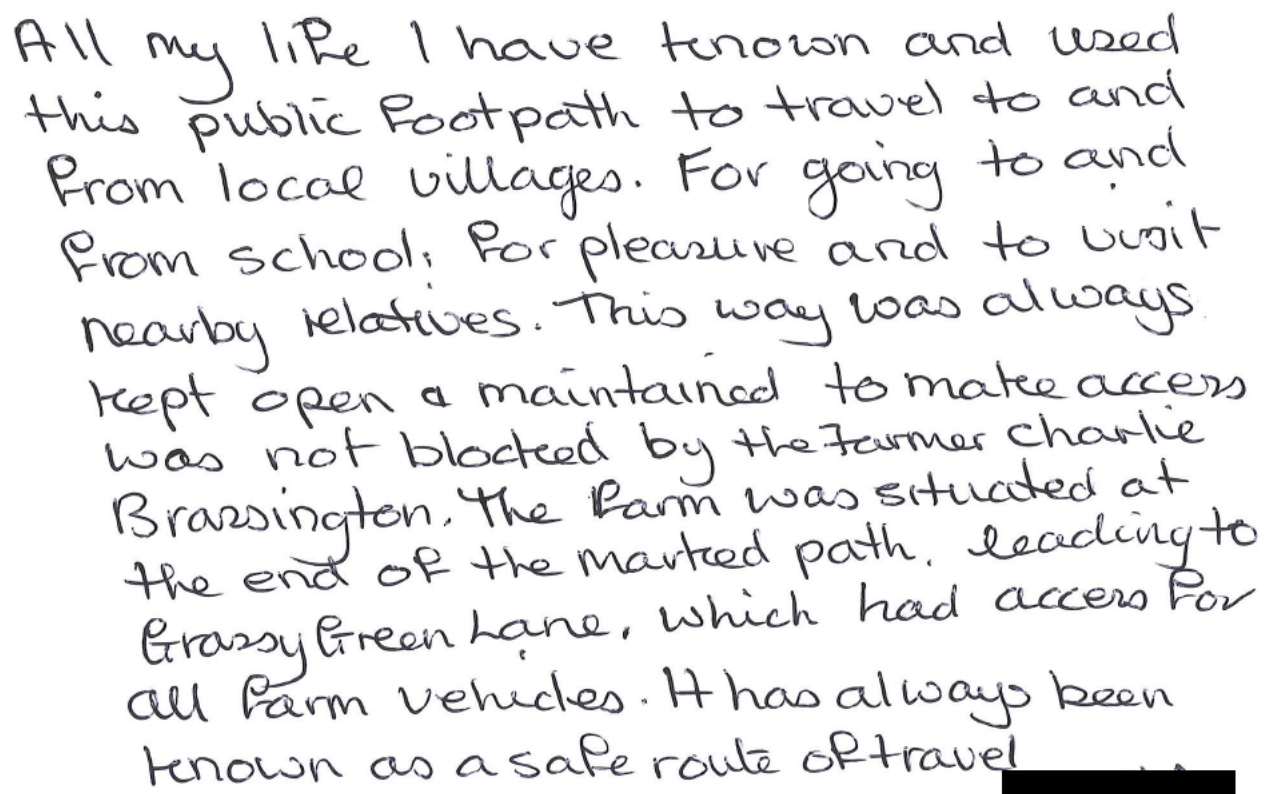 All my life I have known and used
this public footpath to travel to and
from local villages. For going to and
from school; for pleasure and to visit
nearby relatives. This way was always
kept open & maintained to make access
was not blocked by the Farmer Charlie
Brassington. The farm was situated at
the end of the marked path, leading to
Grassy Green Lane, which had access for
all farm vehicles. It has always been
known as a safe route of travel